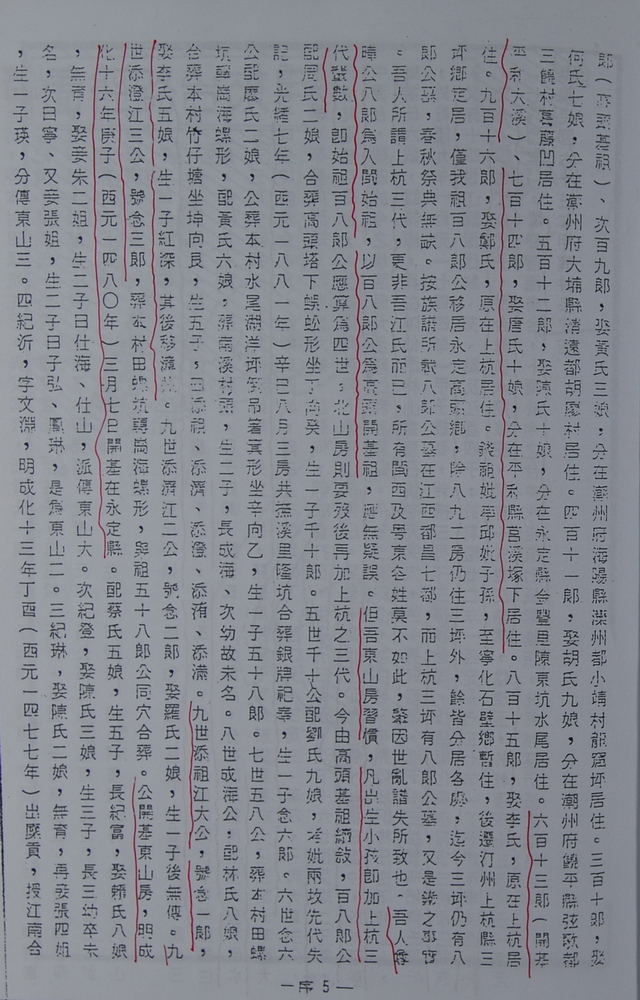 郎（開基祖）、次百九郎，娶黃氏三娘，分在潮州府海陽縣灤州都小靖村龍窟坪居住。三百十郎，娶
何氏七娘，分在潮州府大埔縣清遠都胡寮村居住。四百十一郎，娶胡氏九娘，分在潮州府饒平縣弦歌都
三饒村葛藤凹居住。五百十二郎，娶陳氏十娘，分在永定縣金豐里陳東坑水尾居住。六百十三郎（開基
平和大溪）、七百十四郎，娶唐氏十娘，分在平和縣莒溪塚下居住。八百十五郎，娶李氏，原在上杭居
住。九百十六郎，娶鄭氏，原在上杭居住。錢祖妣率邱妣子孫，至寧化石壁鄉暫住，後遷汀州上杭縣三
坪鄉定居，僅我祖百八郎公移居永定高頭鄉，除八九二房仍住三坪外，餘皆分居各處，迄今三坪仍有八
郎公墓，春秋祭典無缺。按族譜所載八郎公墓在江西都昌七都，而上杭三坪有八郎公墓，又是
。吾人所謂上杭三代，更非吾江氏而已，所有閩西及粵東各姓莫不如此，蓋因世亂譜失所致也。吾人尊
曄公八郎為入閩始祖，以百八郎公為高頭開基祖，應無疑誤。但吾東山房習慣，凡出生小孩即加上杭三
代數，即始祖百八郎公應算為四世，北山房則要歿後再加上杭之三代。今由高頭基祖續敍，百八郎公
配周氏二娘，合葬高頭塔下蜈蚣形坐丁向癸，生一子千十郎。五世千十公配劉氏九娘，考妣兩坟先代失
記，光緒七年（西元一八八一年）辛巳八月三房共撫溪里隆坑合葬銀牌祀，生一子念六郎。六世念六
公配廖氏二娘，公葬本村水尾湖洋坪吊著箕形坐辛向乙，生一子五十八郎。七世五八公，葬本村田螺
坑崗海螺形，配黃氏六娘，葬南溪村，生二子，長成海、次幼故未名。八世成海公，配林氏八娘，
合葬本村竹仔塘坐坤向艮，生五子，曰添祖、添濟、添澄、添洧、添。九世添祖江大公，號念一郎，
娶李氏五娘，生一子紅深，其後移漳。九世添濟江二公，號念二郎，娶羅氏二娘，生一子後無傳。九
世添澄江三公，號念三郎，葬本村田螺坑崗海螺形，與祖五十八郎公同穴合葬。公開基東山房，明成
化十六年庚子（西元一四八〇年）三月七日開基在永定縣。配蔡氏五娘，生五子，長紀富，娶賴氏八娘
，無育，娶妾朱二姐，生二子曰仕海、仕山，派傳東山大。次紀登，娶陳氏三娘，生三子，長三幼卒未
名，次曰寧、又妾張姐，生二子曰子弘、鳳琳，是為東山二。三紀琳，娶陳氏二娘，無育，再娶張四姐
，生一子瑛，分傳東山三。四紀沂，字文淵，明成化十三年丁酉（西元一四七七年）出歲貢，授江南合
—序 5—